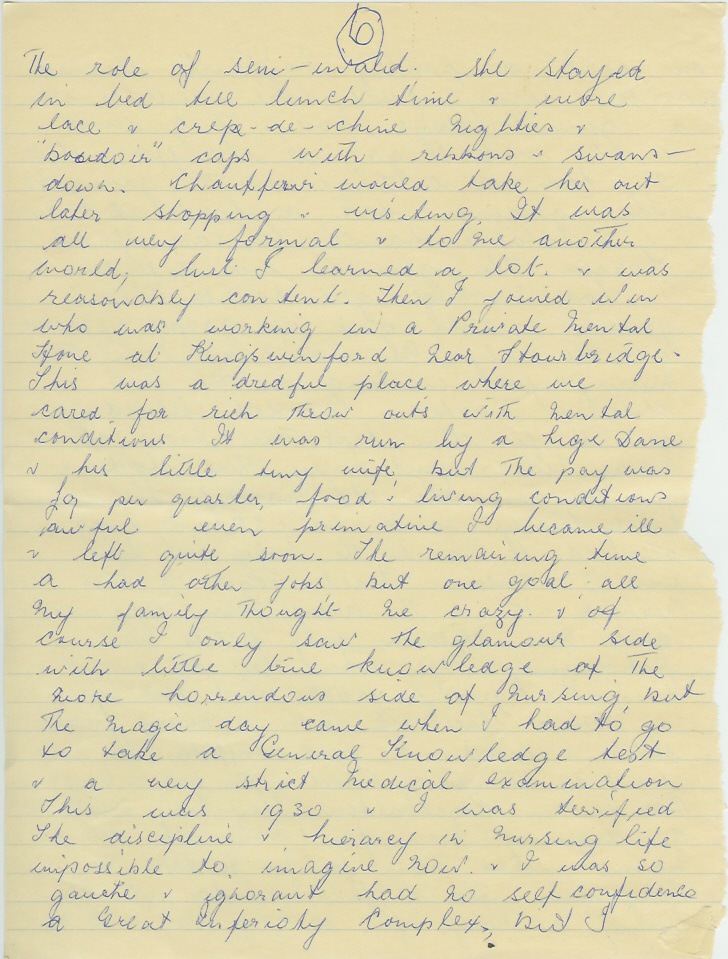 6
The role of semi-invalid. She stayed
in bed till lunch time & wore
lace & crepe-de-chine nighties &
"boudoir" caps with ribbons & swans-
down. Chauffeur would take her out
later shopping & visiting. It was
all very formal & to me another
world, but I learned a lot. & was
reasonably content. Then I joined Win
who was working in a Private Mental
Home at Kingswinford near Stourbridge.
This was a dredful place where we
cared for rich throw outs with mental
conditions It was run by a huge Dane
& his little tiny wife, but the pay was
per quarter, food & living conditions
awful even primative I became ill
& left quite soon. The remaining time
a had other jobs but one goal all
my family thought me crazy. & of
course I only saw the glamour side
with little true knowledge of the
more horrendous side of nursing, but
The magic day came when I had to go
to take a General Knowledge test
& a very strict medical examination
This was 1930 & I was terrified
The discipline & hierarcy in nursing life
impossible to imagine now. & I was so
gauche & ignorant had no self confidence
a Great Inferioty Complex, but I